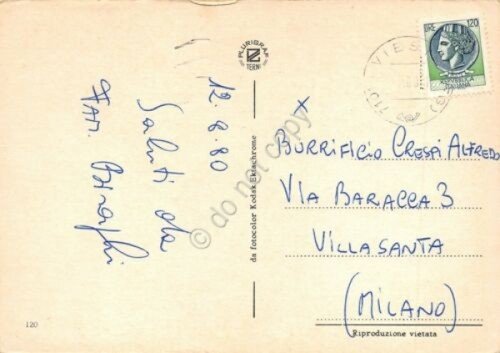 12.8.80
Saluti da
Fam.
PLURIGRAF
TERNI
da fotocolor Kodak Ektachrome
120
LIRE 120
VIES
X
BURRIFICIO CRESPI ALFREDO
VIA BARACCA 3
VILLASANTA
(MILANO)
Riproduzione vietata
© do not copy